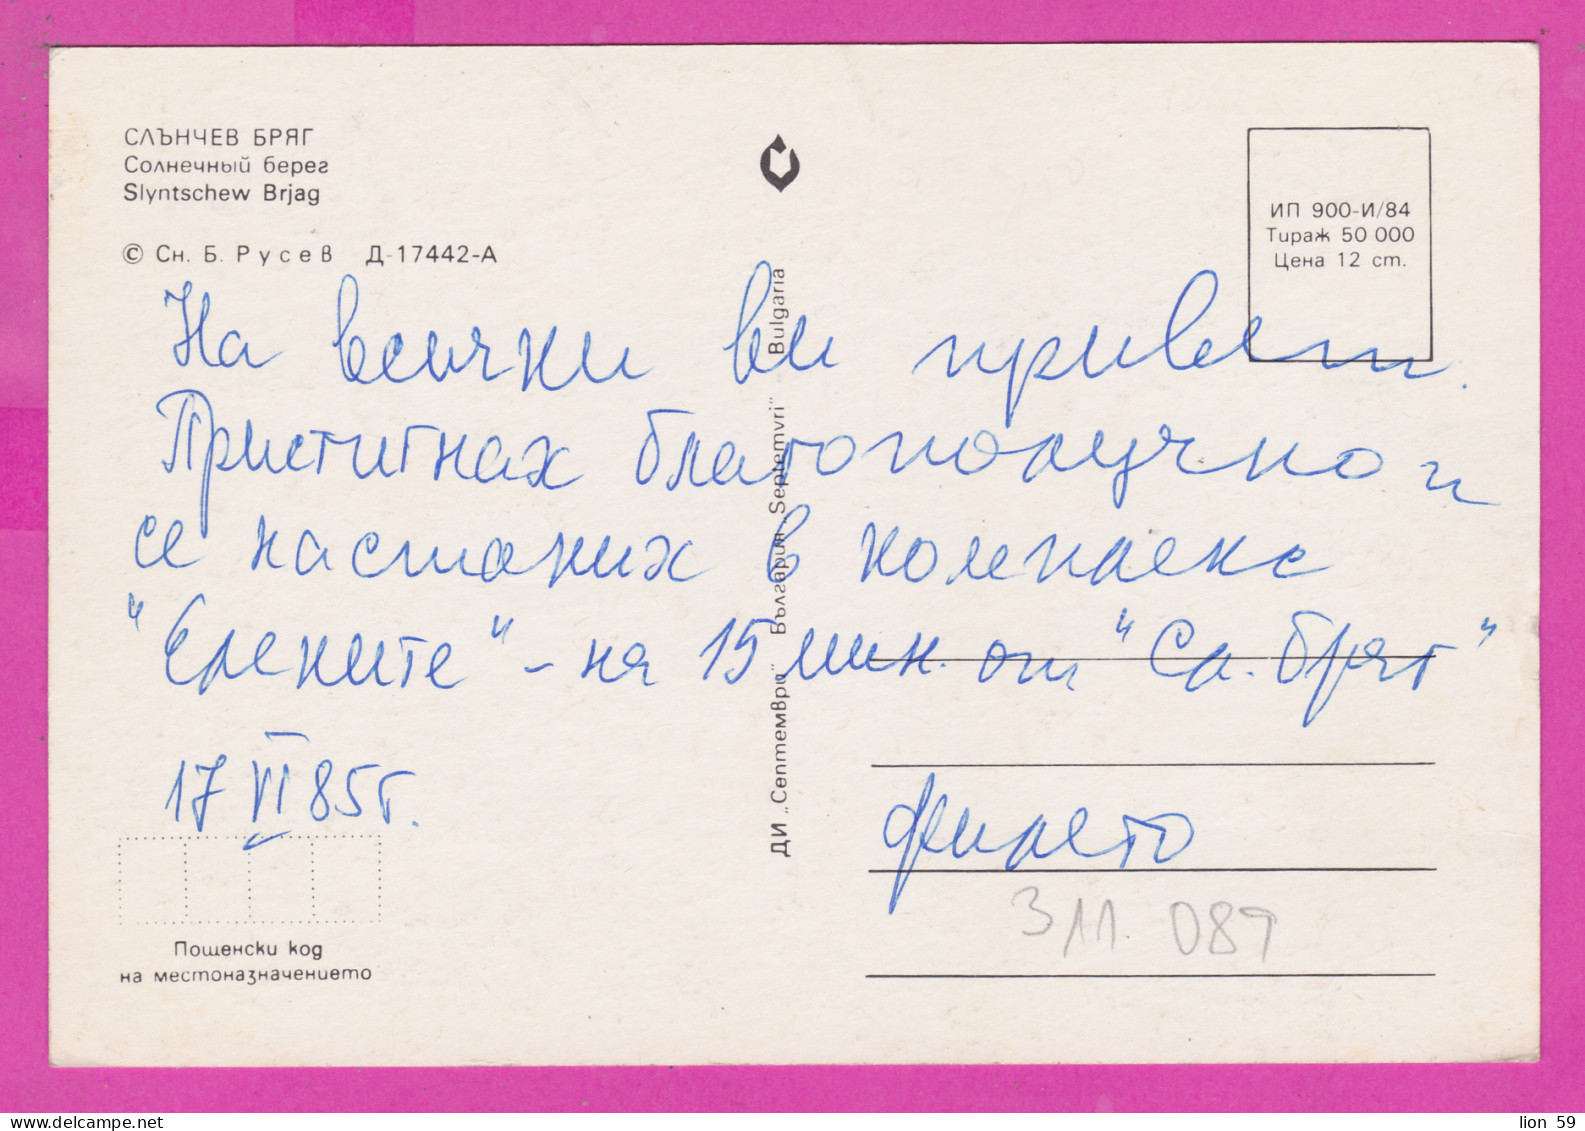 СЛЪНЧЕВ БРЯГ
Солнечный берег
Slyntschew Brjag
© Сн. Б. Русев Д-17442-А
ИП 900-И/84
Тираж 50 000
Цена 12 ст.
На всички ви привет.
Пристигнах благополучно и
се настаних в комплекс
"Елените" - на 15 мин. от "Сл. бряг"
17 VI 85 г.
ДИ „Септември" България „Septemvri" Bulgaria
Пощенски код
на местоназначението
311 087
lion 59